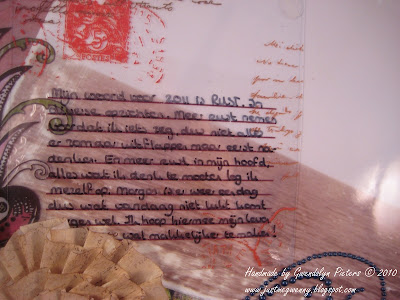 Mijn woord voor 2011 is RUST. In
opzichten. Meer rust nemen
dat ik iets zeg dus niet alles
er zomaar uitflappen maar eerst na-
denken. En meer rust in mijn hoofd
alles wat ik denk te moeten leg ik
mezelf op. Morgen is er weer een dag
dus wat vandaag niet lukt komt
wel. Ik hoop hiermee mijn leven
wat makkelijker te maken!
Handmade by Gwendolyn Pieters © 2010
www.justmegwenny.blogspot.com